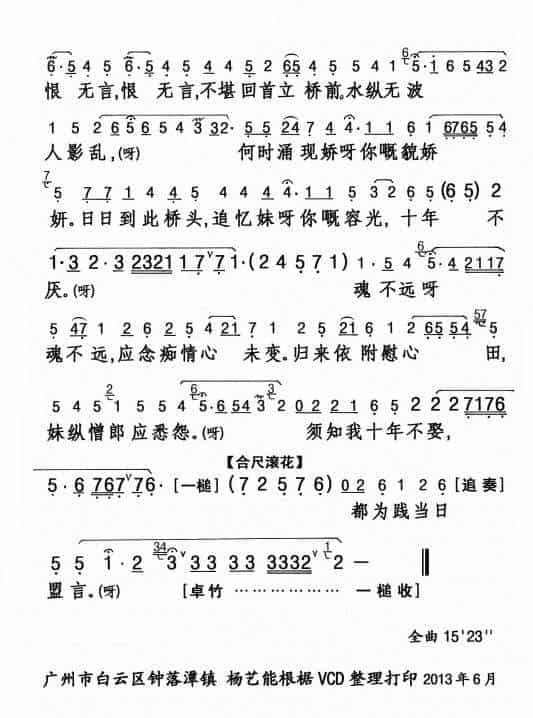 6·5 4 5 6·5 4 5 4 5 2 65 4 5 5 4 1 6 5·1 6 5 432
恨 无言,恨 无言,不堪回首立 桥前。水纵无波
1 5 2 6 5 6 5 4 3 32· 5 5 24 7 4 4·1 6 1 6765 5 4
人影乱,(呀) 何时涌现娇呀你嘅貌娇
7 5 7 7 1 4 4 4 2 4 4·1 1 5 3 2 6 5 (6 5) 2
妍。日日到此桥头,追忆妹呀你嘅容光, 十年 不
1·3 2·3 2321 1 7 7 1·(2 4 5 7 1) 1·5 4 6 5·4 2117
厌。(呀) 魂 不远呀
5 47 1 2 6 2 5 4 21 7 1 2 5 2 6 1 2 65 54 57 5
魂不远,应念痴情心 未变。归来依附慰心 田,
5 4 5 2 1 5 5 4 6 5·6 5 4 3 3 2 02 2 1 6 5 2 2 2 7176
妹纵憎郎应悉怨。(呀) 须知我十年不娶,
【合尺滚花】
5·6 767 76·[一槌](7 2 5 7 6) 02 6 1 2 6 [追奏]
都为践当日
5 5 1·2 34 3 3 3 3 3 3332 1 2 —
盟言。(呀) [卓竹 ……………… 一槌收]
全曲 15'23''
广州市白云区钟落潭镇 杨艺能根椐VCD整理打印 2013年6月